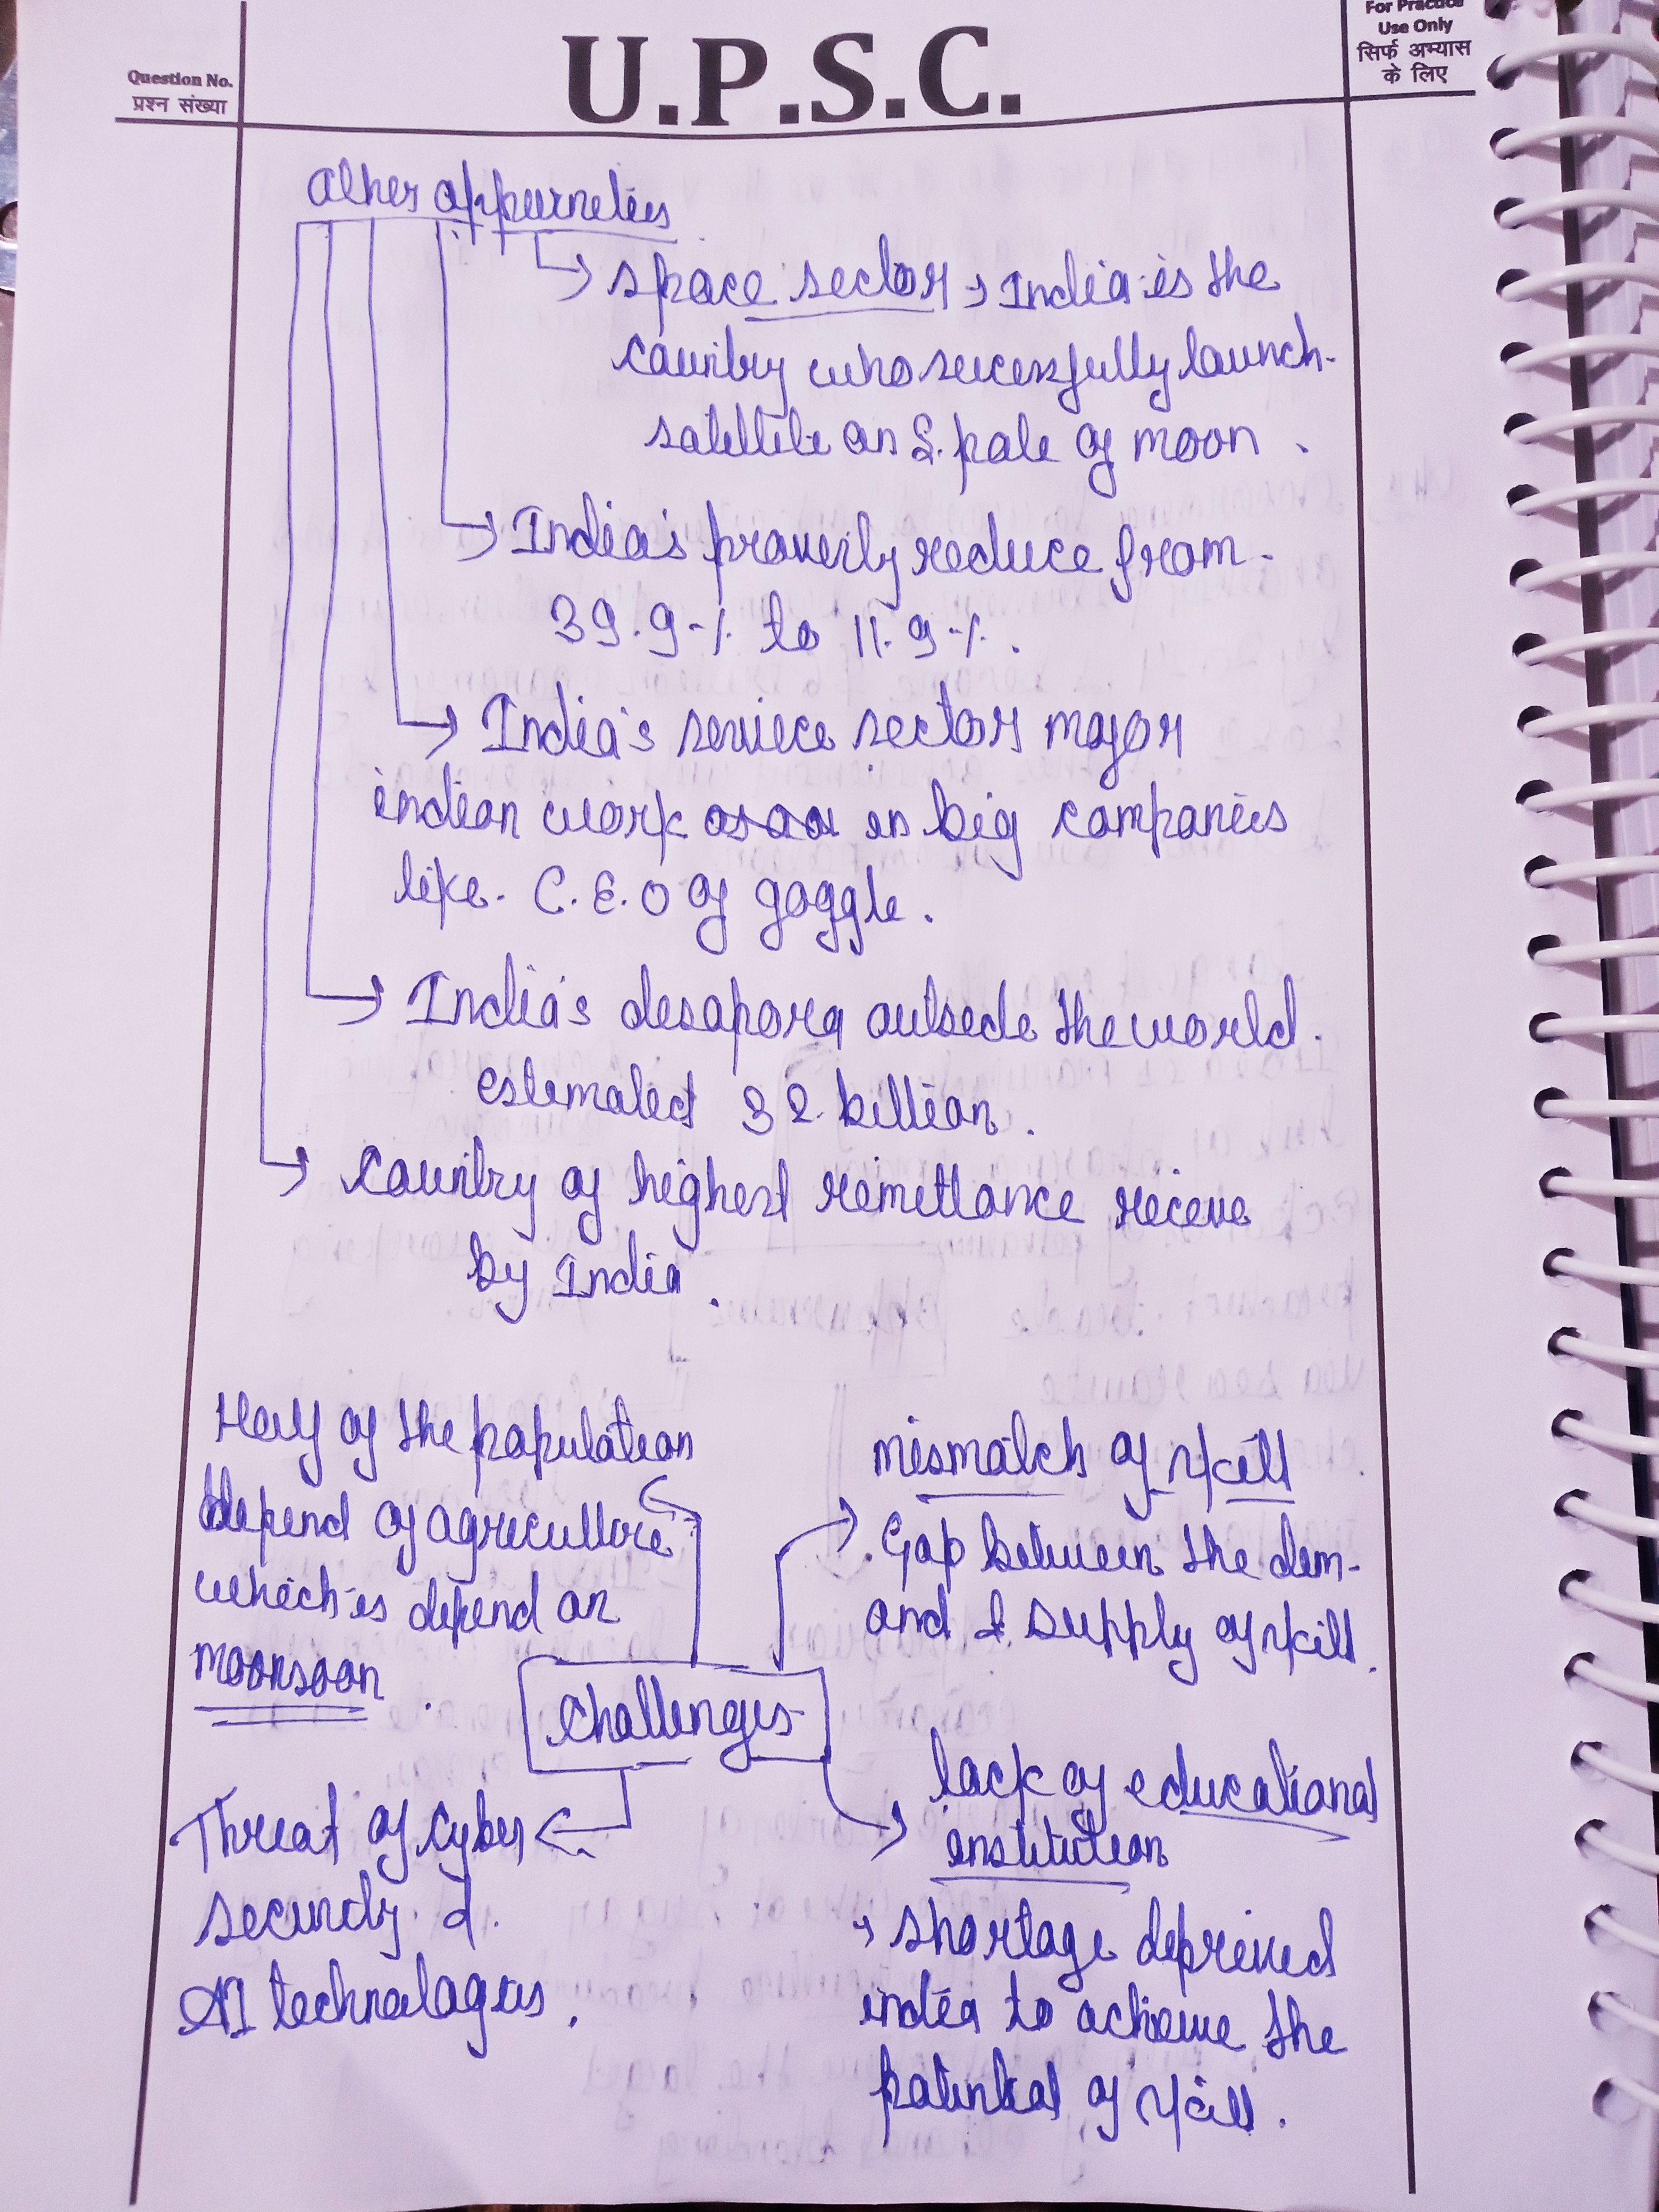 Question No.
प्रश्न संख्या
U.P.S.C.
For Practice
Use Only
सिर्फ अभ्यास
के लिए
Other oppurneties
Space sector → India is the
country who sucessfully launch
satellite on S. pole of moon.
India's proverty reduce from
39.9% to 11.9%.
India's service sector major
indian work in big companies
like. C.E.O of goggle.
India's desapora outsede the world
estemated 32 billion.
Country of highest remittance receve
by India.
Half of the population
depend of agreculture
which is depend on
moonsoon.
mismatch of skill
Gap between the dem-
and & supply of skill.
Challenges
lack of educational
institution
→ shortage deprived
india to achieve the
potential of skill.
Threat of Cyber
security &
AI technologies.